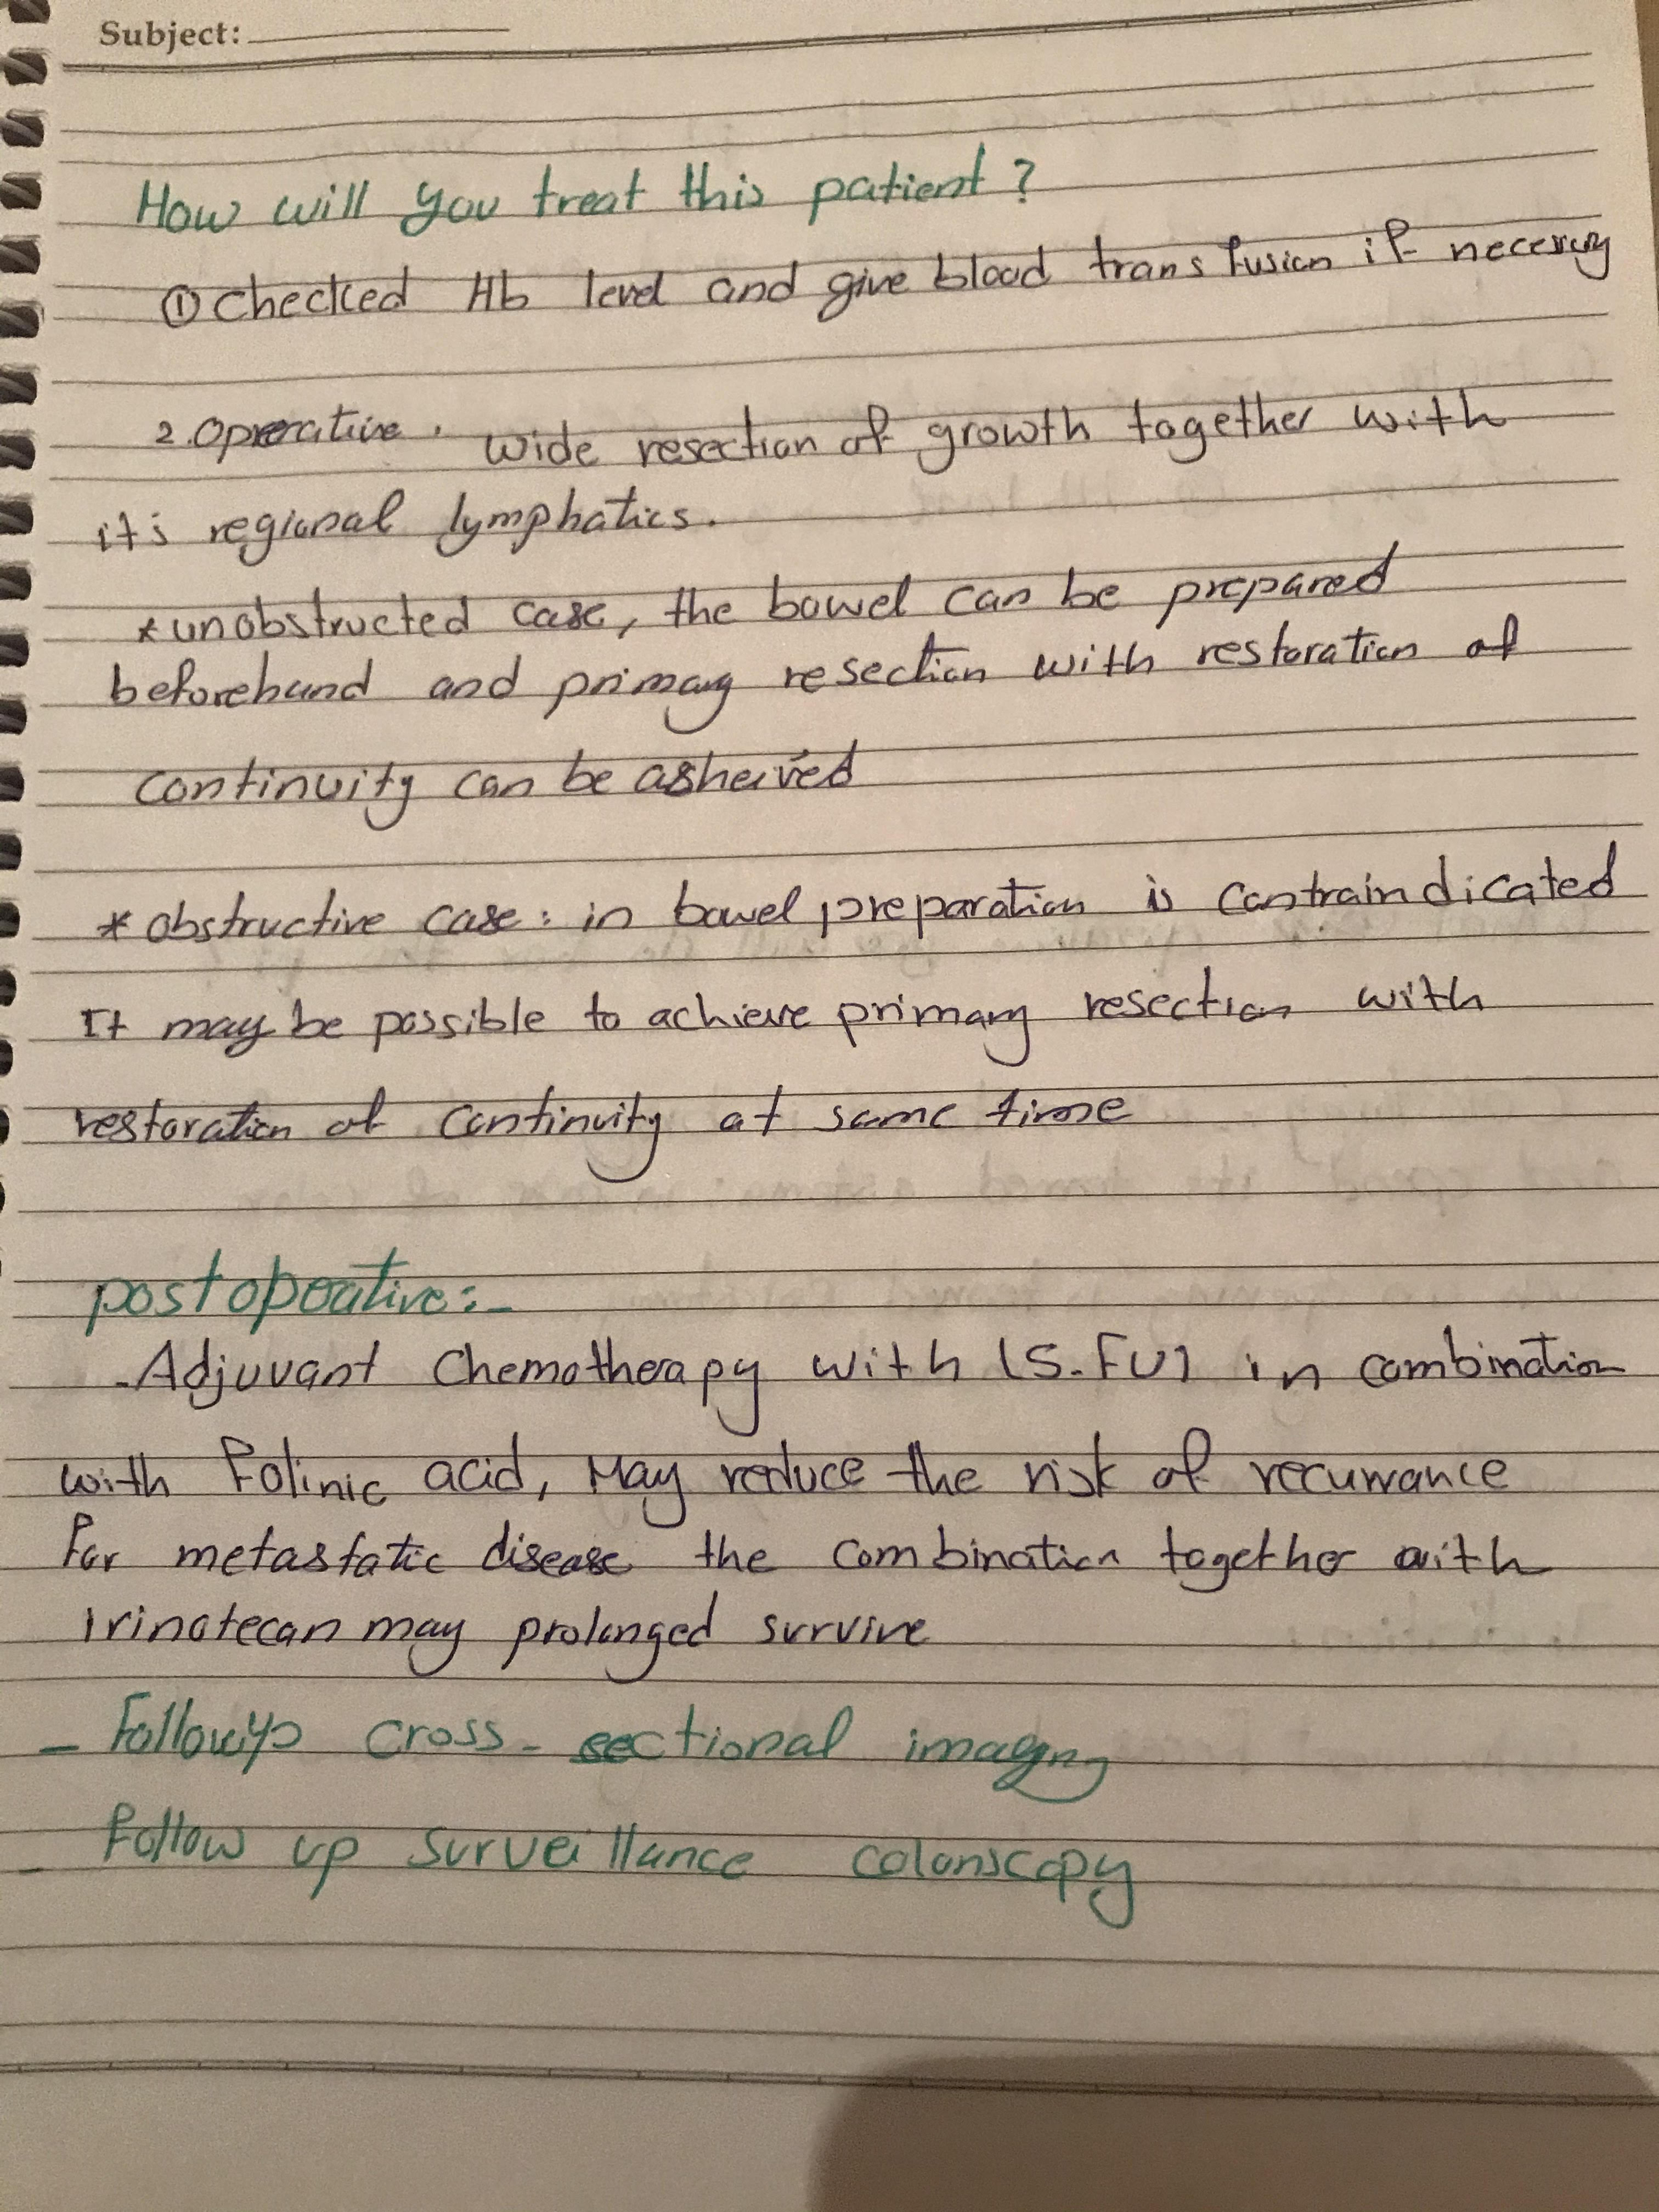 Subject:
How will you treat this patient?
① Checked Hb level and give blood transfusion if necessary
2. Operative. wide resection of growth together with
it's regional lymphatics.
* unobstructed case, the bowel can be prepared
beforehand and primary resection with restoration of
continuity can be asheived
* obstructive case: in bowel preparation is contraindicated
It may be possible to achieve primary resection with
restoration of continuity at same time
postoperative:-
- Adjuvant Chemotherapy with (5-FU) in combination
with Folinic acid, May reduce the risk of recurrance
for metastatic disease the combination together with
irinotecan may prolonged survive
- Followup cross-sectional imaging
- Follow up surveillance colonscopy